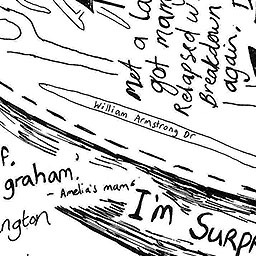 met a la
got mar
Relapsed w
Breakdown
again. I
William Armstrong Dr
f.
graham.'
- Amelia's mam
ngton
I'm SURPR